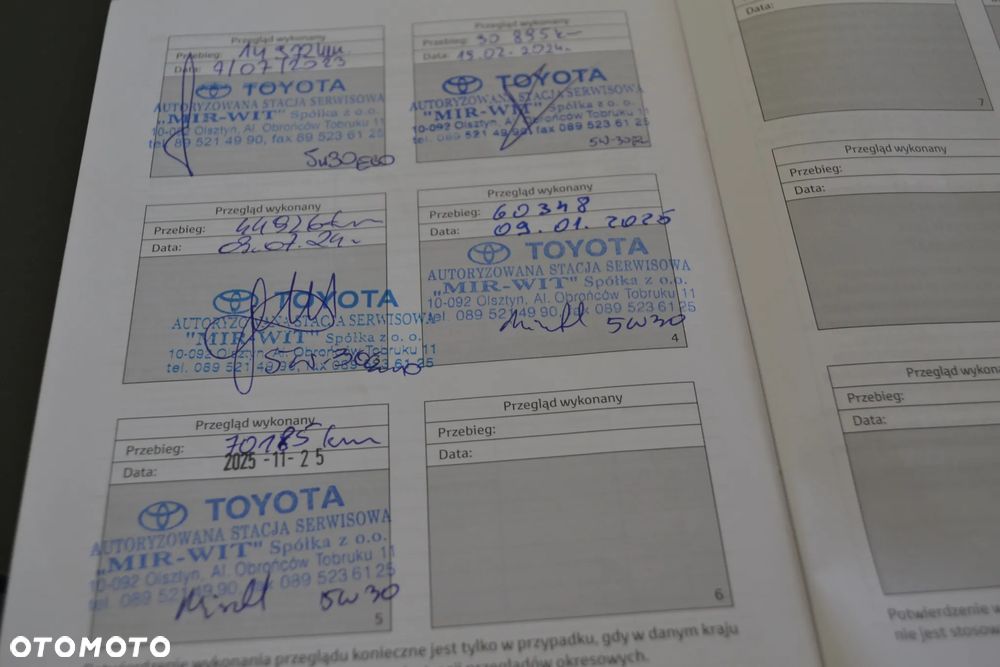 Przegląd wykonany
Przebieg: 14 372 km
Data: 7/07/2023
TOYOTA
AUTORYZOWANA STACJA SERWISOWA
"MIR-WIT" Spółka z o.o.
10-092 Olsztyn, Al. Obrońców Tobruku 11
tel. 89 521 49 90, fax 89 523 61 25
5W30
Przegląd wykonany
Przebieg: 30 895 km
Data: 15.02.2024r.
TOYOTA
AUTORYZOWANA STACJA SERWISOWA
"MIR-WIT" Spółka z o.o.
10-092 Olsztyn, Al. Obrońców Tobruku 11
tel. 089 521 49 90, fax 089 523 61 25
5W-30
Przegląd wykonany
Przebieg: 44926 km
Data: 09.07.24r
TOYOTA
AUTORYZOWANA STACJA SERWISOWA
"MIR-WIT" Spółka z o.o.
10-092 Olsztyn, Al. Obrońców Tobruku 11
tel. 089 521 49 90, fax 089 523 61 25
5W-30
Przegląd wykonany
Przebieg: 60348
Data: 09.01.2025
TOYOTA
AUTORYZOWANA STACJA SERWISOWA
"MIR-WIT" Spółka z o.o.
10-092 Olsztyn, Al. Obrońców Tobruku 11
tel. 089 521 49 90, fax 089 523 61 25
5W30
4
Przegląd wykonany
Przebieg: 70185 km
Data: 2025-11-25
TOYOTA
AUTORYZOWANA STACJA SERWISOWA
"MIR-WIT" Spółka z o.o.
10-092 Olsztyn, Al. Obrońców Tobruku 11
tel. 089 521 49 90 089 523 61 25
5W30
5
Przegląd wykonany
Przebieg:
Data:
6
wykonania przeglądu konieczne jest tylko w przypadku, gdy w danym kraju
przeglądów okresowych.
Data:
7
Przegląd wykonany
Przebieg:
Data:
Przegląd wykona
Przebieg:
Data:
Potwierdzenie w
nie jest stosow
OTOMOTO